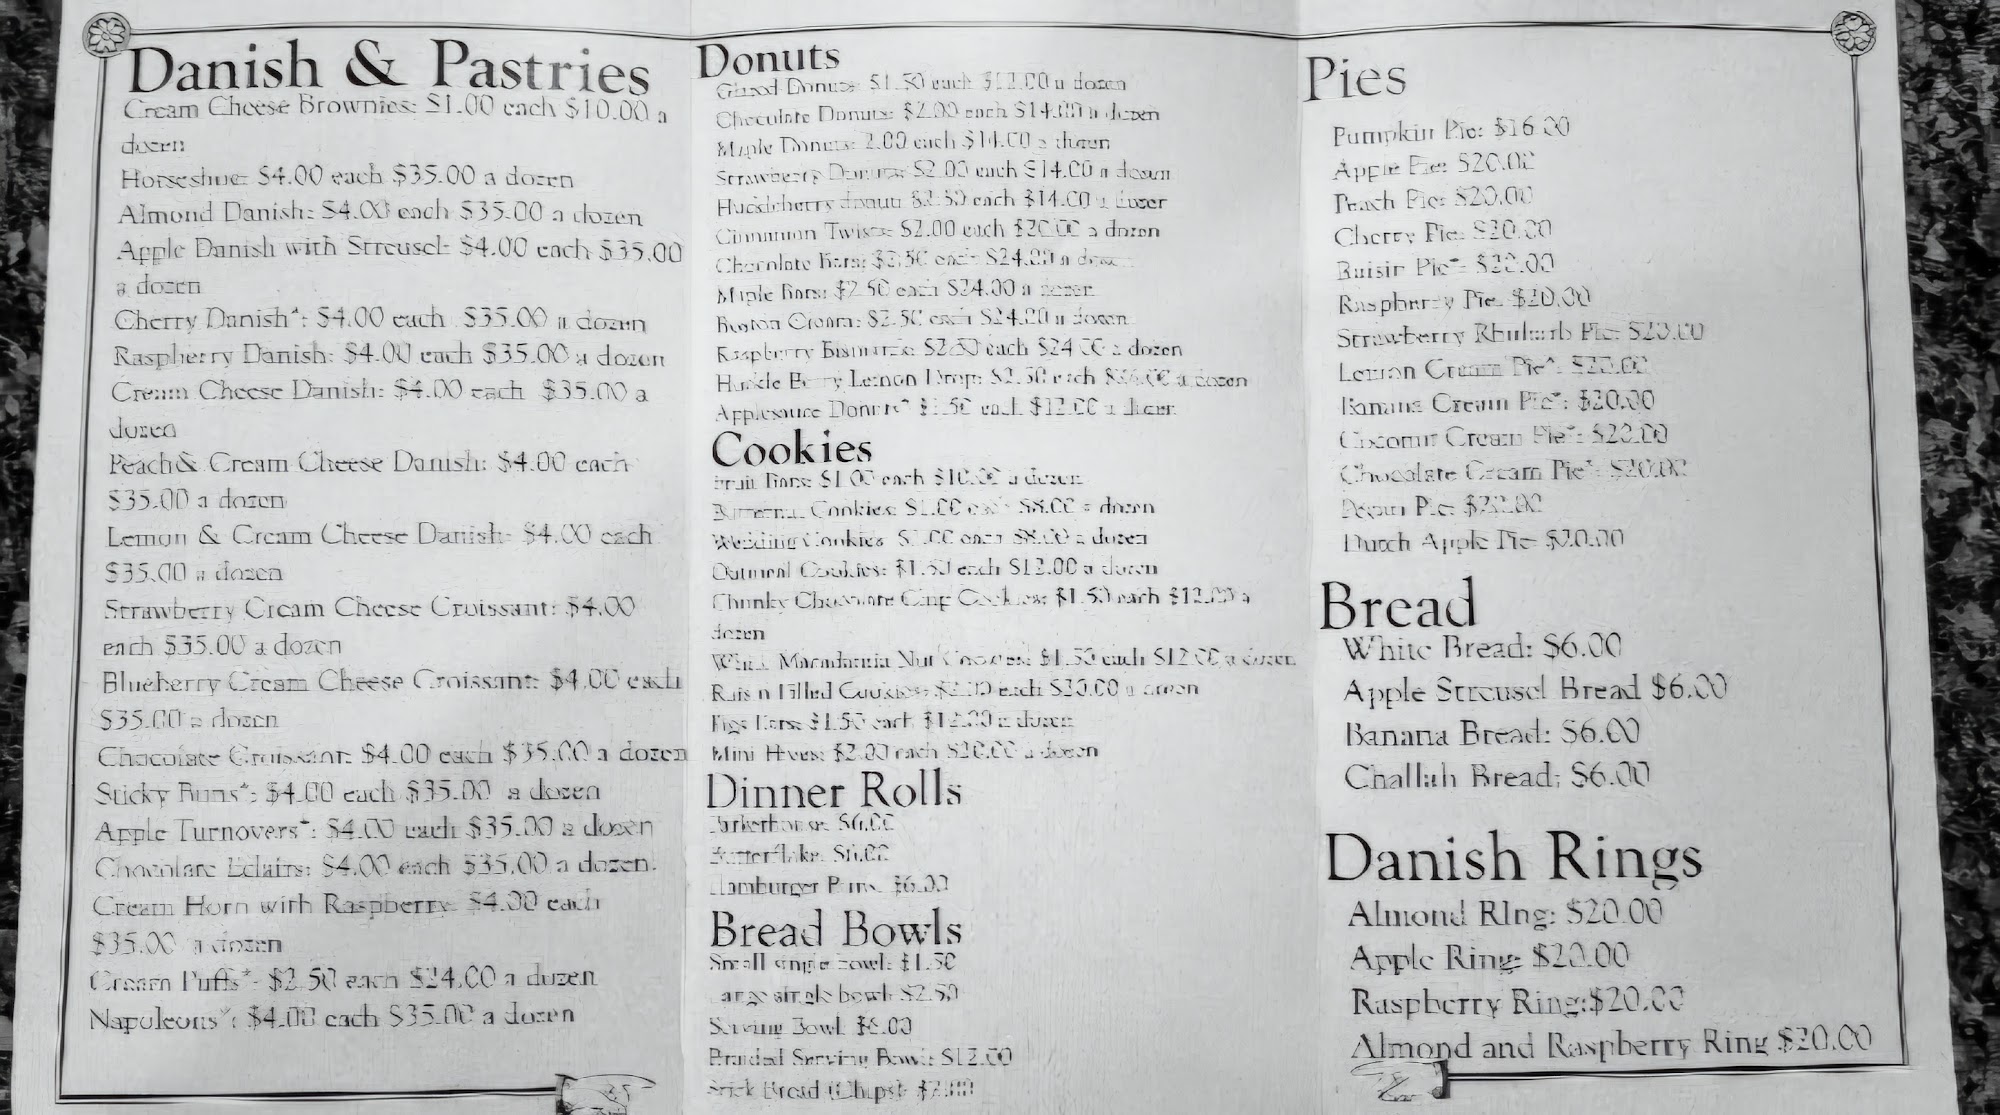 Danish & Pastries
Cream Cheese Brownies: $1.00 each $10.00 a
dozen
Horseshoe: $4.00 each $35.00 a dozen
Almond Danish: $4.00 each $35.00 a dozen
Apple Danish with Streusel: $4.00 each $35.00
a dozen
Cherry Danish*: $4.00 each $35.00 a dozen
Raspberry Danish: $4.00 each $35.00 a dozen
Cream Cheese Danish: $4.00 each $35.00 a
dozen
Peach& Cream Cheese Danish: $4.00 each
$35.00 a dozen
Lemon & Cream Cheese Danish: $4.00 each
$35.00 a dozen
Strawberry Cream Cheese Croissant: $4.00
each $35.00 a dozen
Blueberry Cream Cheese Croissant: $4.00 each
$35.00 a dozen
Chocolate Croissant: $4.00 each $35.00 a dozen
Sticky Buns*: $4.00 each $35.00 a dozen
Apple Turnovers*: $4.00 each $35.00 a dozen
Chocolate Eclairs: $4.00 each $35.00 a dozen.
Cream Horn with Raspberry: $4.00 each
$35.00 a dozen
Cream Puffs*: $2.50 each $24.00 a dozen
Napoleons*: $4.00 each $35.00 a dozen
Donuts
Glazed Donuts: $1.50 each $12.00 a dozen
Chocolate Donuts: $2.00 each $14.00 a dozen
Maple Donuts: 2.00 each $14.00 a dozen
Strawberry Donuts: $2.00 each $14.00 a dozen
Huckleberry donut: $2.50 each $14.00 a dozen
Cinnamon Twists: $2.00 each $20.00 a dozen
Chocolate Bars: $2.50 each $24.00 a dozen
Maple Bars: $2.50 each $24.00 a dozen
Boston Cream: $2.50 each $24.00 a dozen
Raspberry Bismarks: $2.50 each $24.00 a dozen
Huckle Berry Lemon Drop: $2.50 each a dozen
Applesauce Donuts* $1.50 each $12.00 a dozen
Cookies
Fruit Bars: $1.00 each $10.00 a dozen
Cookies: $1.00 each $8.00 a dozen
Wedding Cookies $1.00 each $8.00 a dozen
Oatmeal Cookies: $1.50 each $12.00 a dozen
Chunky Chocolate Chip Cookies: $1.50 each $12.00 a
dozen
White Macadamia Nut Cookies: $1.50 each $12.00 a dozen
Raisin Filled Cookies: each a dozen
Figs Bars: $1.50 each $12.00 a dozen
Mini Hives: $2.00 each $20.00 a dozen
Dinner Rolls
Parkerhouse: $6.00
Butterflake: $6.00
Hamburger Buns: $6.00
Bread Bowls
Small single bowl: $1.50
Large single bowl: $2.50
Serving Bowl: $6.00
Braided Serving Bowl: $12.00
Stick Bread (Chips): $7.00
Pies
Pumpkin Pie: $16.00
Apple Pie: $20.00
Peach Pie: $20.00
Cherry Pie: $20.00
Raisin Pie*: $20.00
Raspberry Pie: $20.00
Strawberry Rhubarb Pie: $20.00
Lemon Cream Pie*: $20.00
Banana Cream Pie*: $20.00
Coconut Cream Pie*: $20.00
Chocolate Cream Pie*: $20.00
Pecan Pie:
Dutch Apple Pie $20.00
Bread
White Bread: $6.00
Apple Streusel Bread $6.00
Banana Bread: $6.00
Challah Bread: $6.00
Danish Rings
Almond RIng: $20.00
Apple Ring: $20.00
Raspberry Ring:$20.00
Almond and Raspberry Ring $20.00